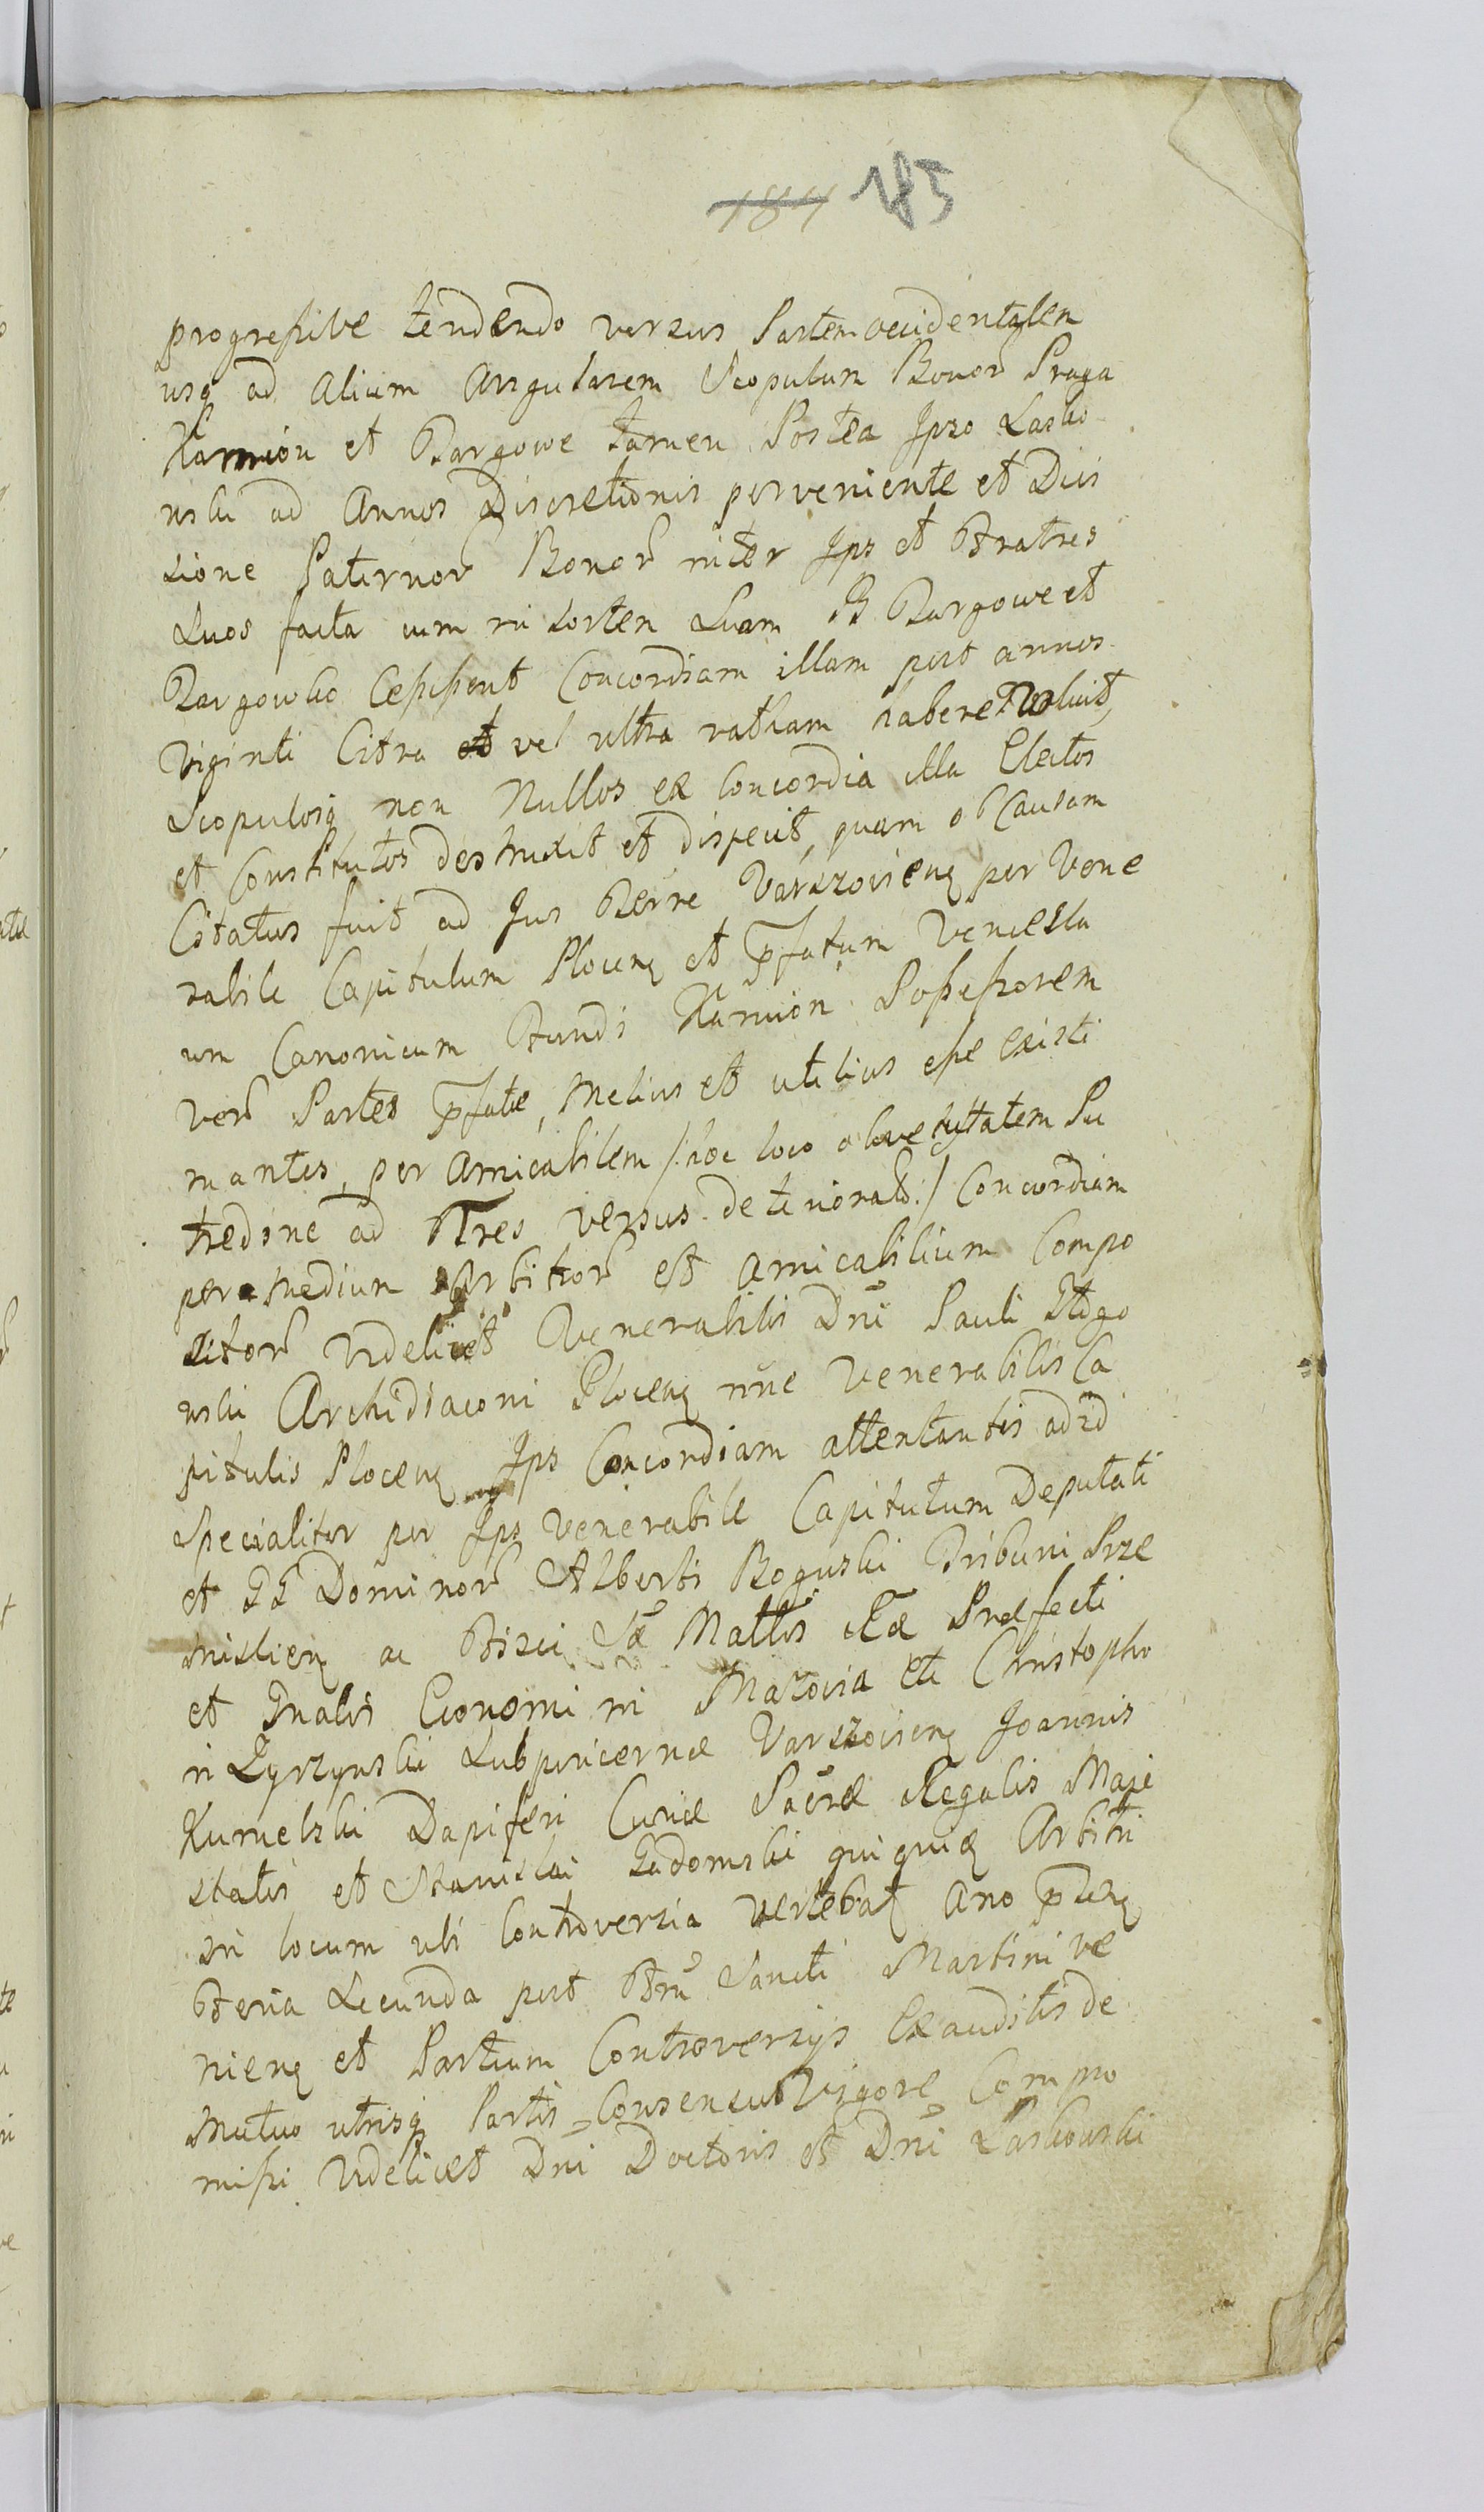 184 185
progressive tendendo versus Partem occidentalem
usq ad Alium Angularem Scopulum Bonor Praga
Kamion et Targowe tamen Postea Ipso Lasko
wski ad Annos Discretionis perveniente et Divi
sione Paternor Bonor inter Ips et Fratres
Suos facta cum in sortem Suam B Targowe et
Targowko Cessissent Concordiam illam post annos
viginti Citra et vel ultra ratham habere Noluit,
Scopulosq non Nullos ex Concordia illa Electos
et Constitutos destruxit et disjecit, quam ob Causam
Citatus fuit ad Jus Terre Varszovieng per Vene
rabile Capitulum Ploceng et Pfatum Vencesla
um Canonicum Fundi Kamion Possessorem
Ver Partes Pfate, Melius et utilius esse Existi
mantes, per Amicabilem /: hoc loco ob vetustatem Pu
tredine ad Tres versus deteriorato :/ Concordiam
per medium Arbitror et Amicabilium Compo
sitor Videlicet Venerabilis Dni Pauli
wski Archidiaconi Ploceng nne Venerabilis Ca
pitulis Ploceng Ips Concordiam attentantis ad id
Specialiter per Ips Venerabile Capitulum Deputati
et GG Dominor Alberti Boguski Tribuni Prze
mislieng ac Fisci Sæ Mattis Ræ Præfecti
et Gnalis Economi in Mazovia et Christopho
ri Lyszynski Subpincernæ Varszovieng Joannis
Kumelski Dapiferi Curiæ Sacræ Regalis Maje
statis et Stanislai Gadomski quiquid Arbitri
in locum ubi Controversia vertebat Ano pteng
Feria Secunda post Ftu Sancti Martini ve
nieng et Partium Controversys Exauditis de
Mutuo utrisq Partis Consensu Vigore Compro
missi Videlicet Dni Doctoris et Dni Laskowski